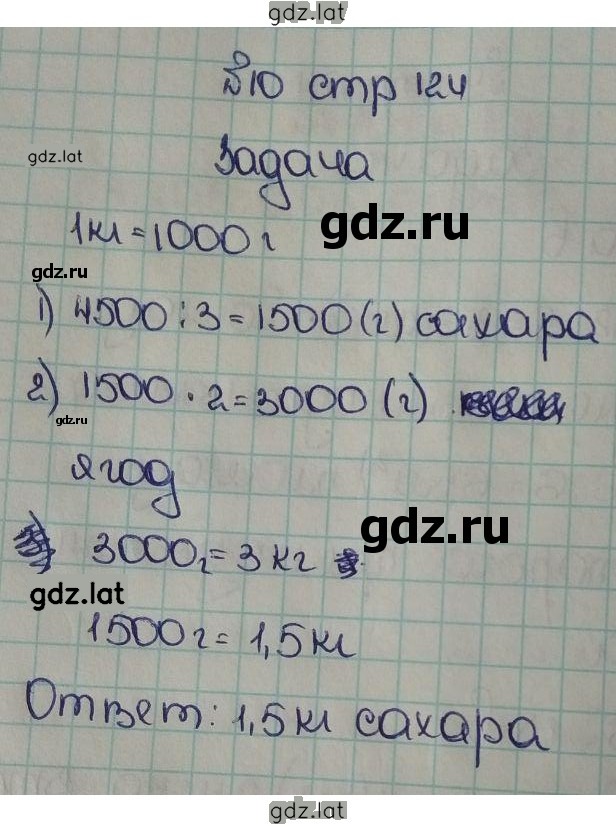 gdz.lat
№10 стр 124
gdz.lat
Задача
gdz.ru
1кг=1000г
gdz.ru
1) 4500:3=1500(г) сахара
2) 1500·2=3000(г)
gdz.ru
ягод
gdz.ru
3000г=3кг
gdz.lat
1500г=1,5кг
Ответ: 1,5кг сахара
gdz.lat